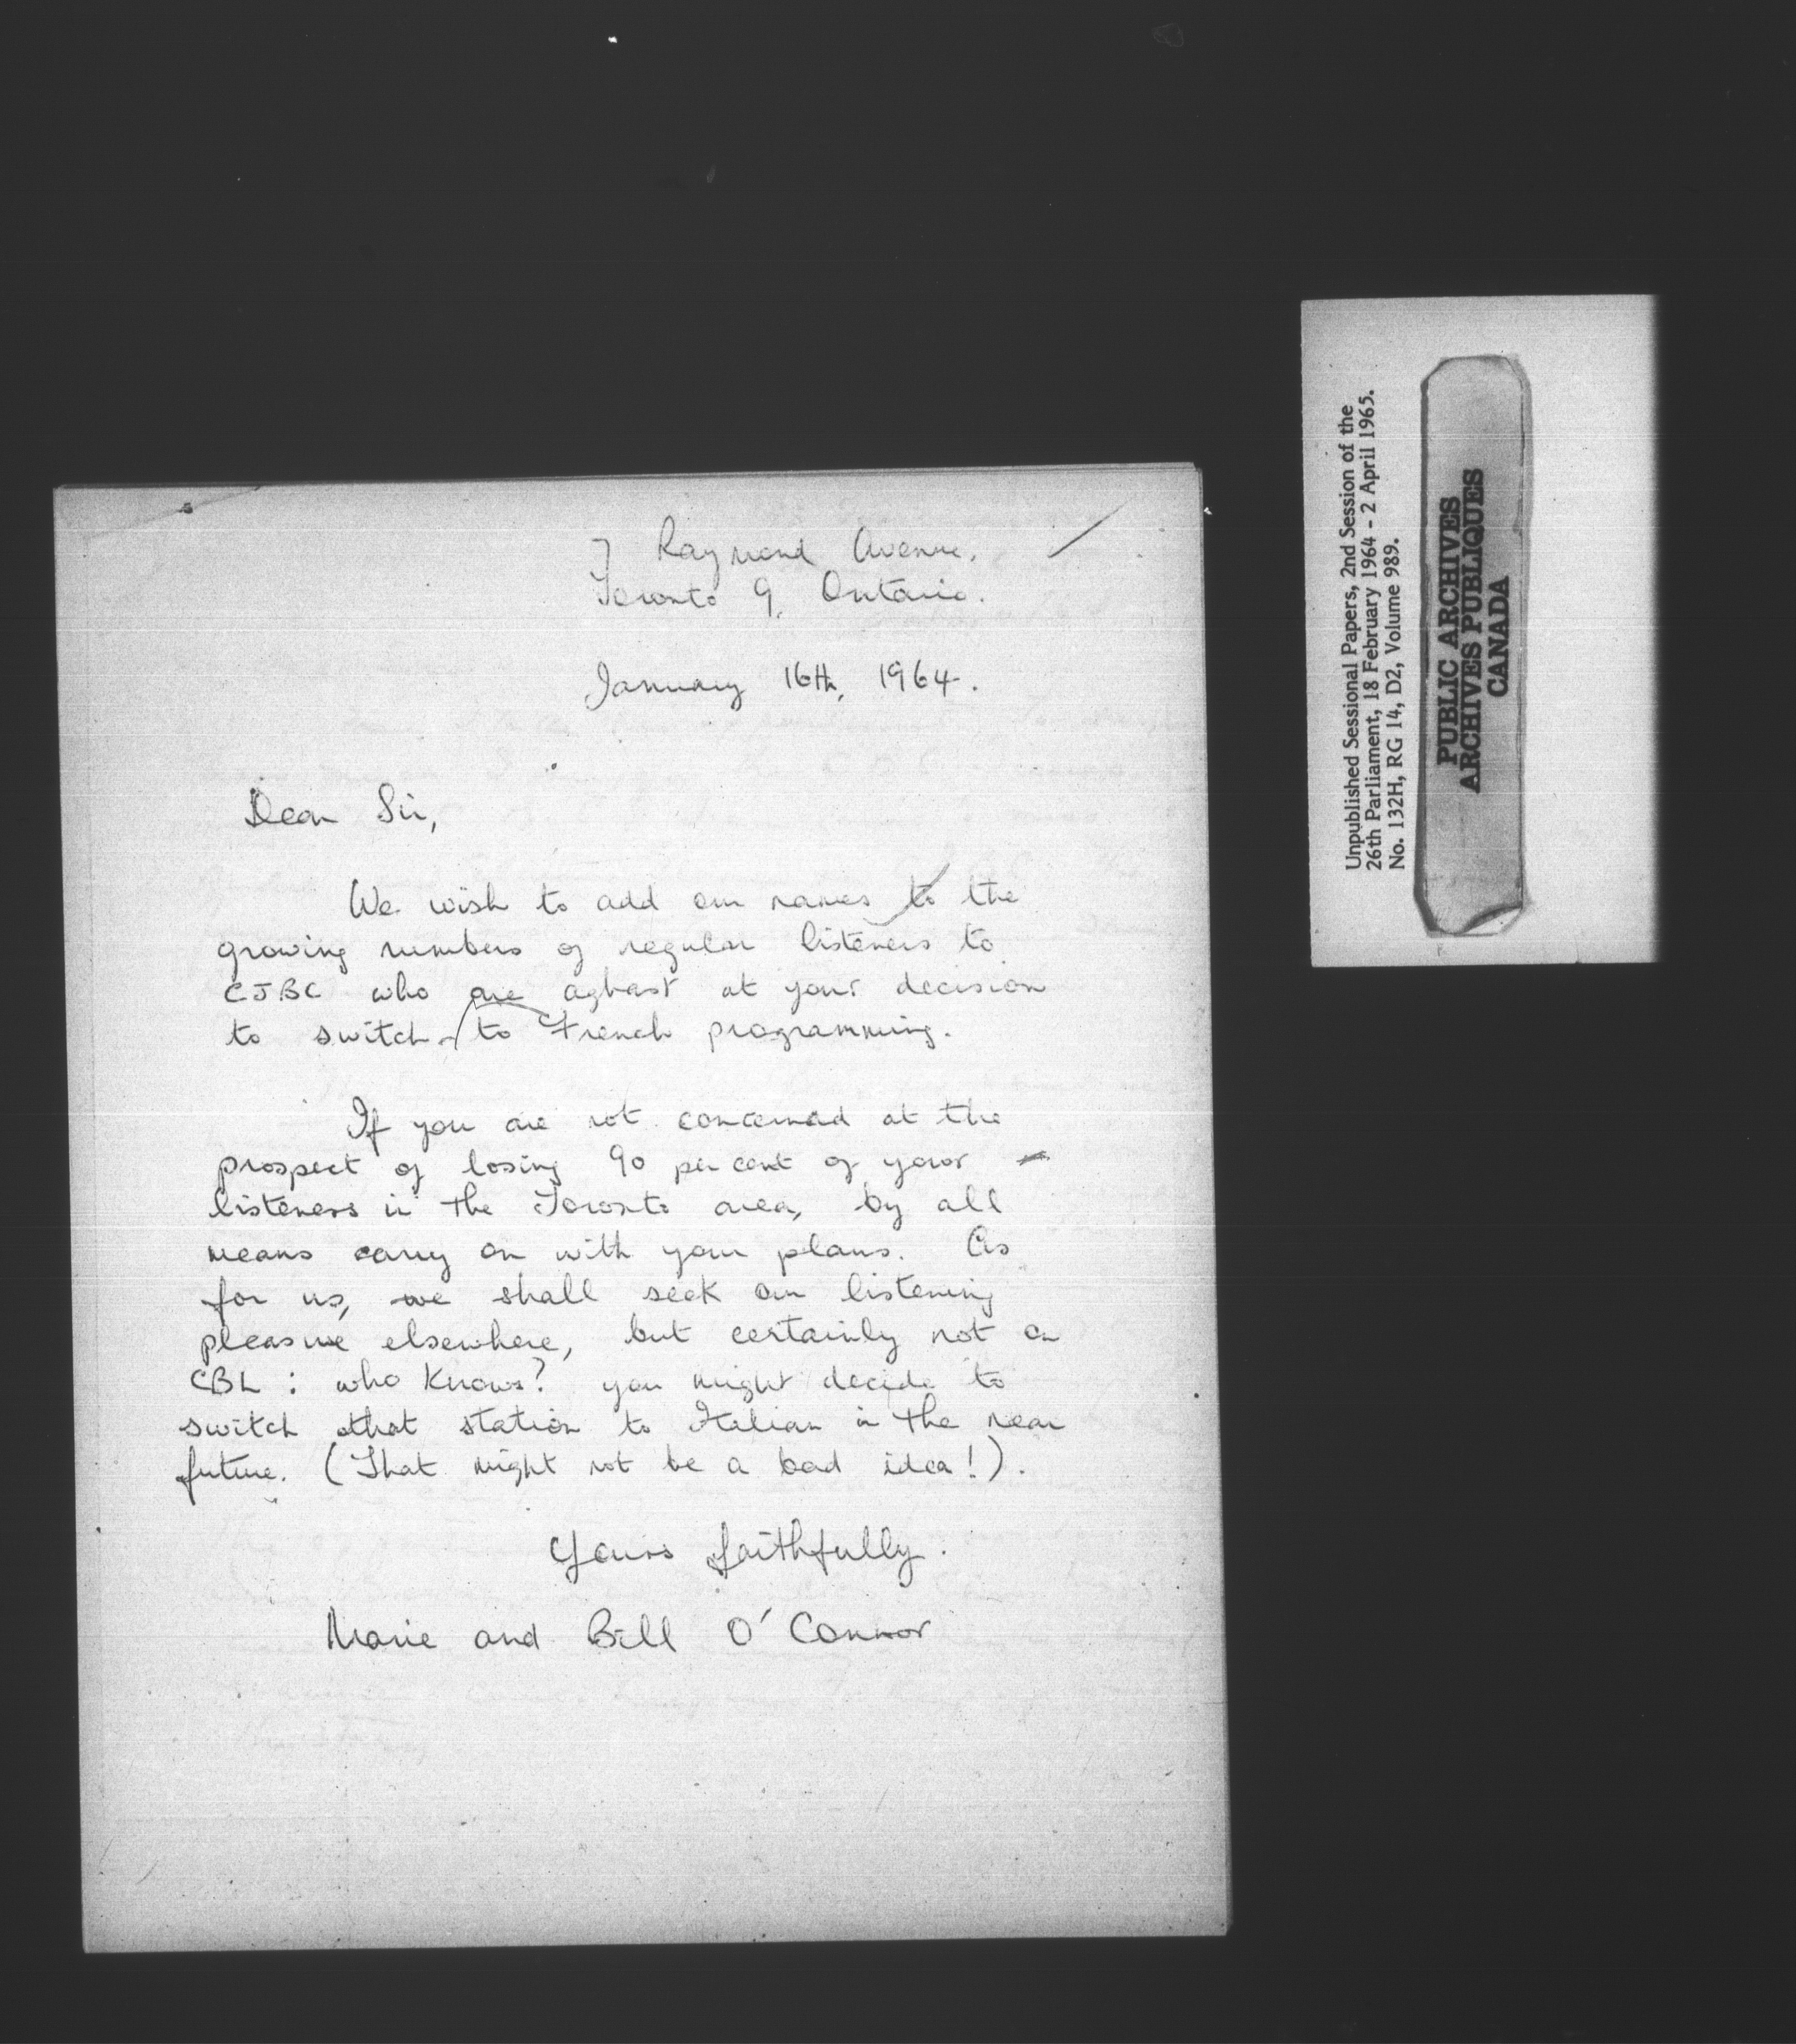 7 Raymond Avenue,
Toronto 9, Ontario.
January 16th, 1964.
Dear Sir,
We wish to add our names to the
growing numbers of regular listeners to
CJBC who are aghast at your decision
to switch to French programming.
If you are not concerned at the
prospect of losing 90 per cent of your
listeners in the Toronto area, by all
means carry on with your plans. As
for us, we shall seek our listening
pleasure elsewhere, but certainly not on
CBL : who knows? you might decide to
switch that station to Italian in the near
future. (That might not be a bad idea!).
Yours faithfully.
Marie and Bill O'Connor
Unpublished Sessional Papers, 2nd Session of the
26th Parliament, 18 February 1964 - 2 April 1965.
No. 132H, RG 14, D2, Volume 989.
PUBLIC ARCHIVES
ARCHIVES PUBLIQUES
CANADA